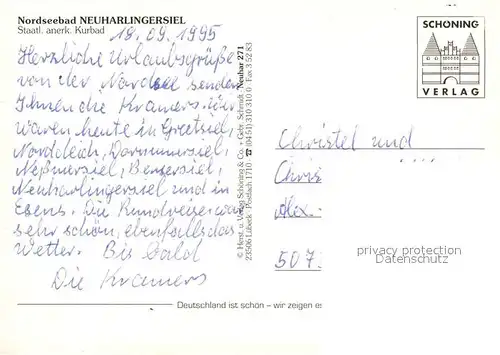 Nordseebad NEUHARLINGERSIEL
Staatl. anerk. Kurbad
18.09.1995
Herzliche Urlaubsgrüße
von der Nordsee senden
Ihnen die Kramers. Wir
waren heute in Greetsiel,
Norddeich, Dornumersiel,
Neßmersiel, Bensersiel,
Neuharlingersiel und in
Esens. Die Rundreise war
sehr schön, ebenfalls das
Wetter. Bis bald
Die Kramers
© Herst. u. Verlag Schöning & Co. + Gebr. Schmidt · Neuhar 271
23506 Lübeck · Postfach 1710 · ☎ (0451) 310 310 0 · Fax 3 52 83
SCHÖNING
VERLAG
Christel und
Chris
Alex.
507
privacy protection
Datenschutz
Deutschland ist schön – wir zeigen es